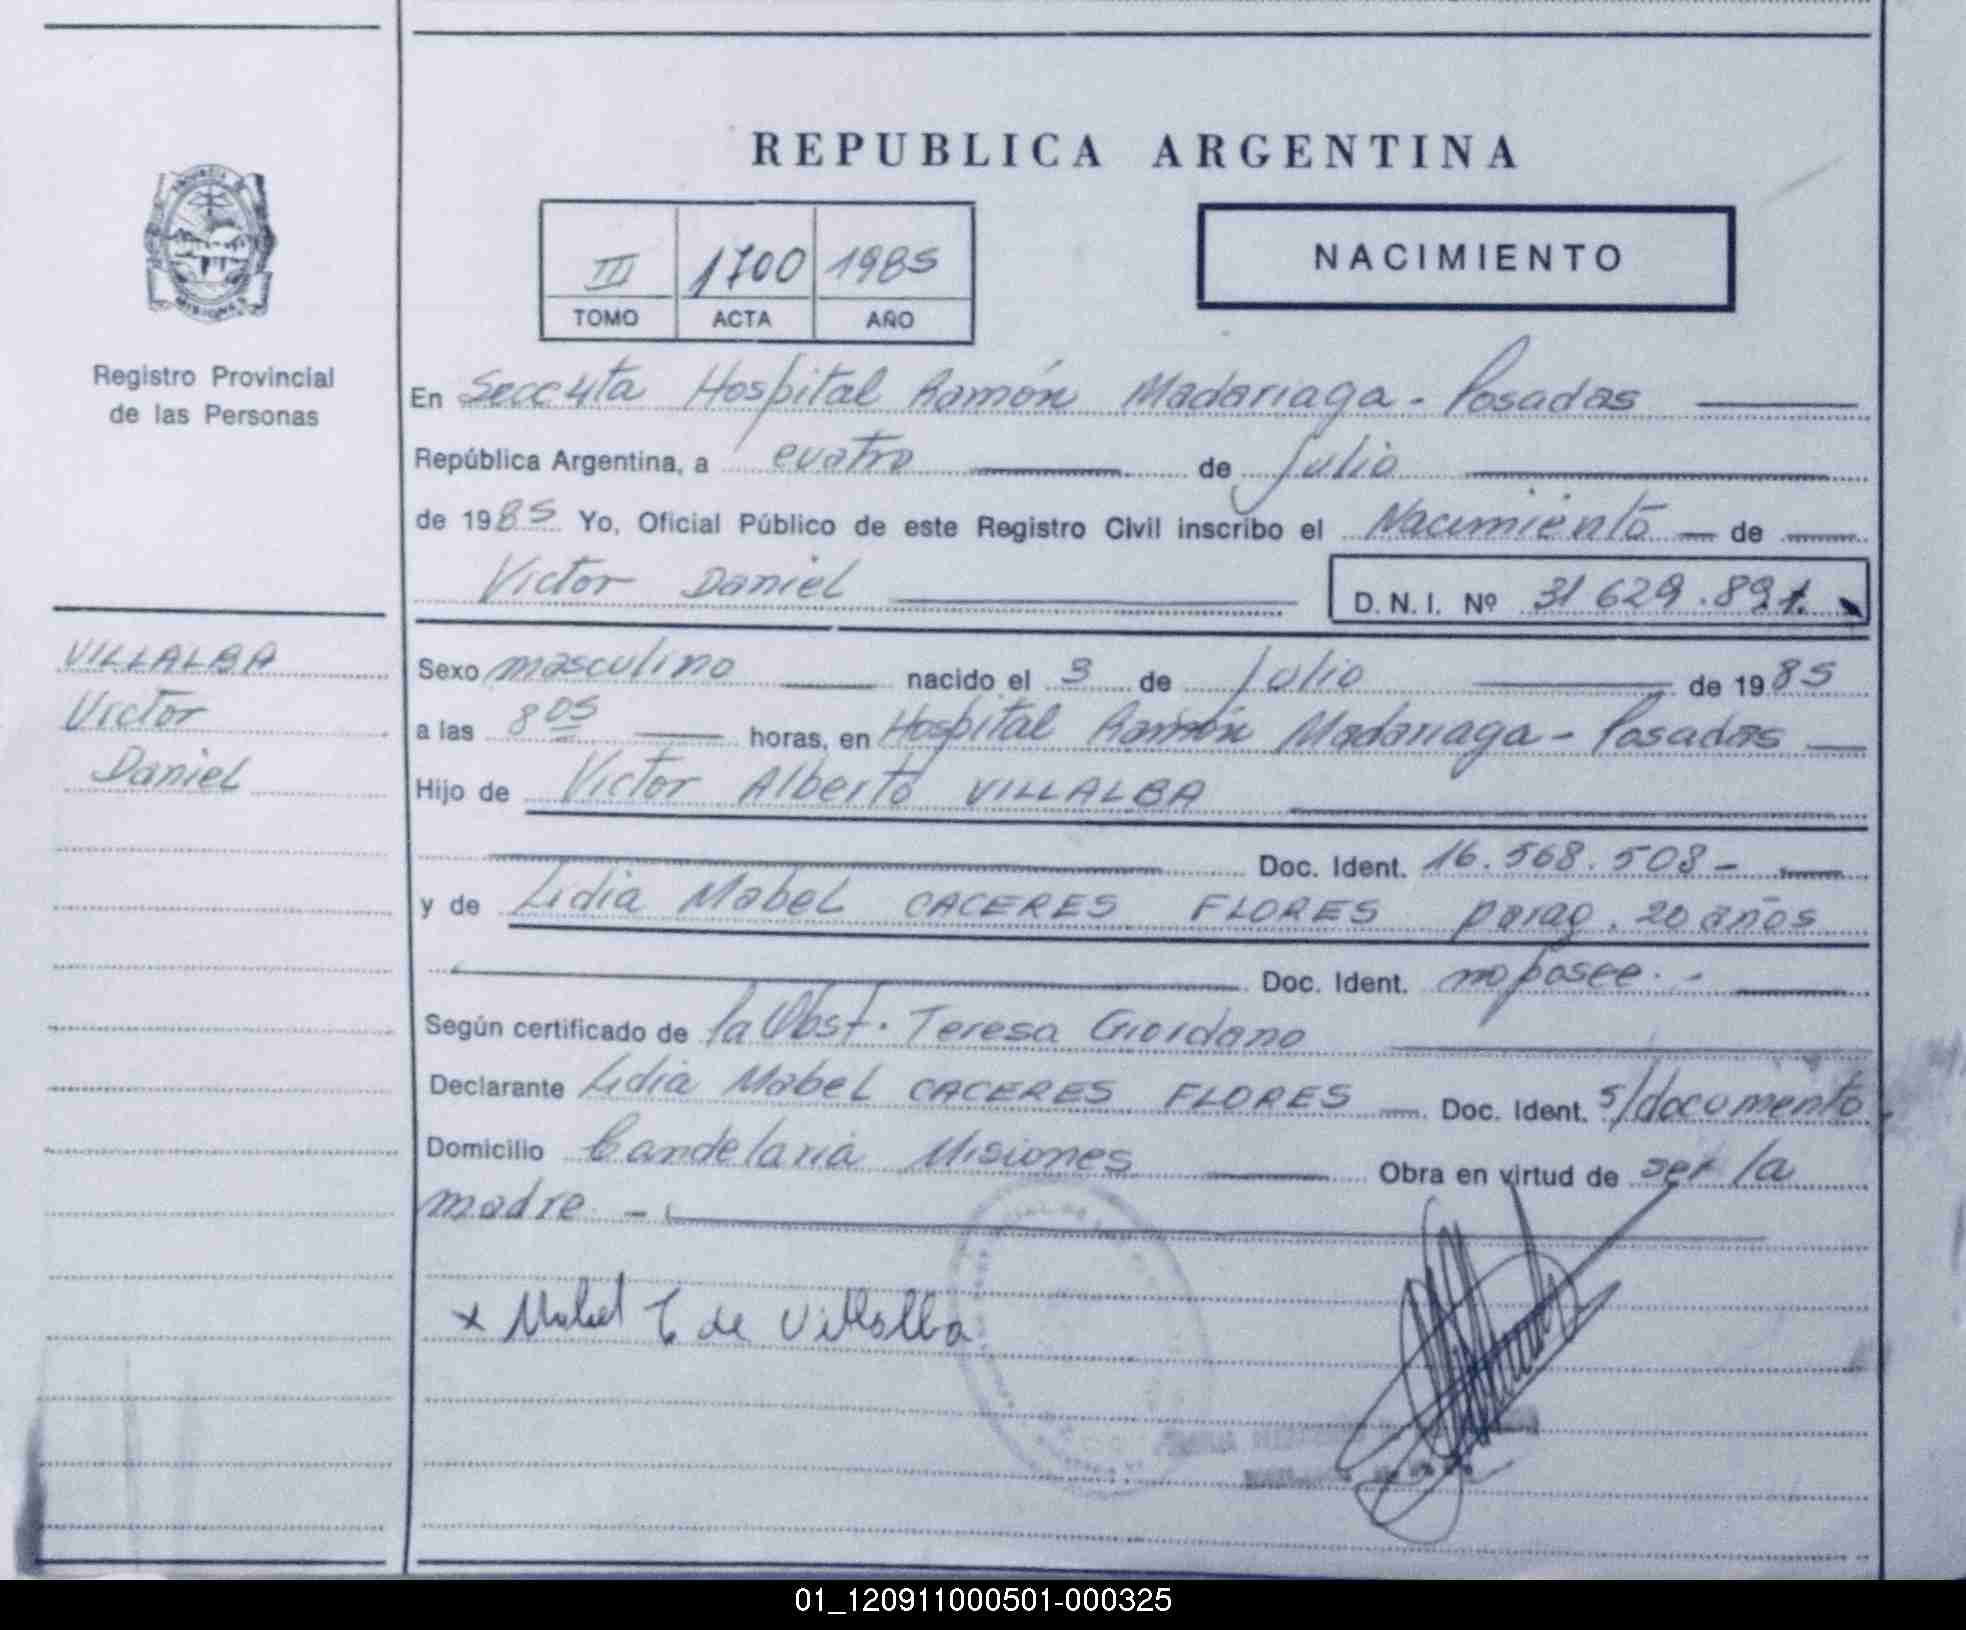 REPUBLICA ARGENTINA
PROVINCIA DE
MISIONES
Registro Provincial
de las Personas
III 1700 1985
TOMO ACTA AÑO
NACIMIENTO
En Secc 4ta Hospital Ramón Madariaga - Posadas
República Argentina, a cuatro de Julio
de 1985 Yo, Oficial Público de este Registro Civil inscribo el Nacimiento de
Victor Daniel D.N.I. Nº 31 629.891.
VILLALBA
Victor
Daniel
Sexo masculino nacido el 3 de Julio de 1985
a las 8 05 horas, en Hospital Ramón Madariaga - Posadas
Hijo de Victor Alberto VILLALBA
Doc. Ident. 16.568.508 -
y de Lidia Mabel CACERES FLORES parag. 20 años
Doc. Ident. no posee. -
Según certificado de la Obst. Teresa Giordano
Declarante Lidia Mabel CACERES FLORES Doc. Ident. s/documento.
Domicilio Candelaria Misiones Obra en virtud de ser la
madre -
x Mabel C de Villalba
01_120911000501-000325